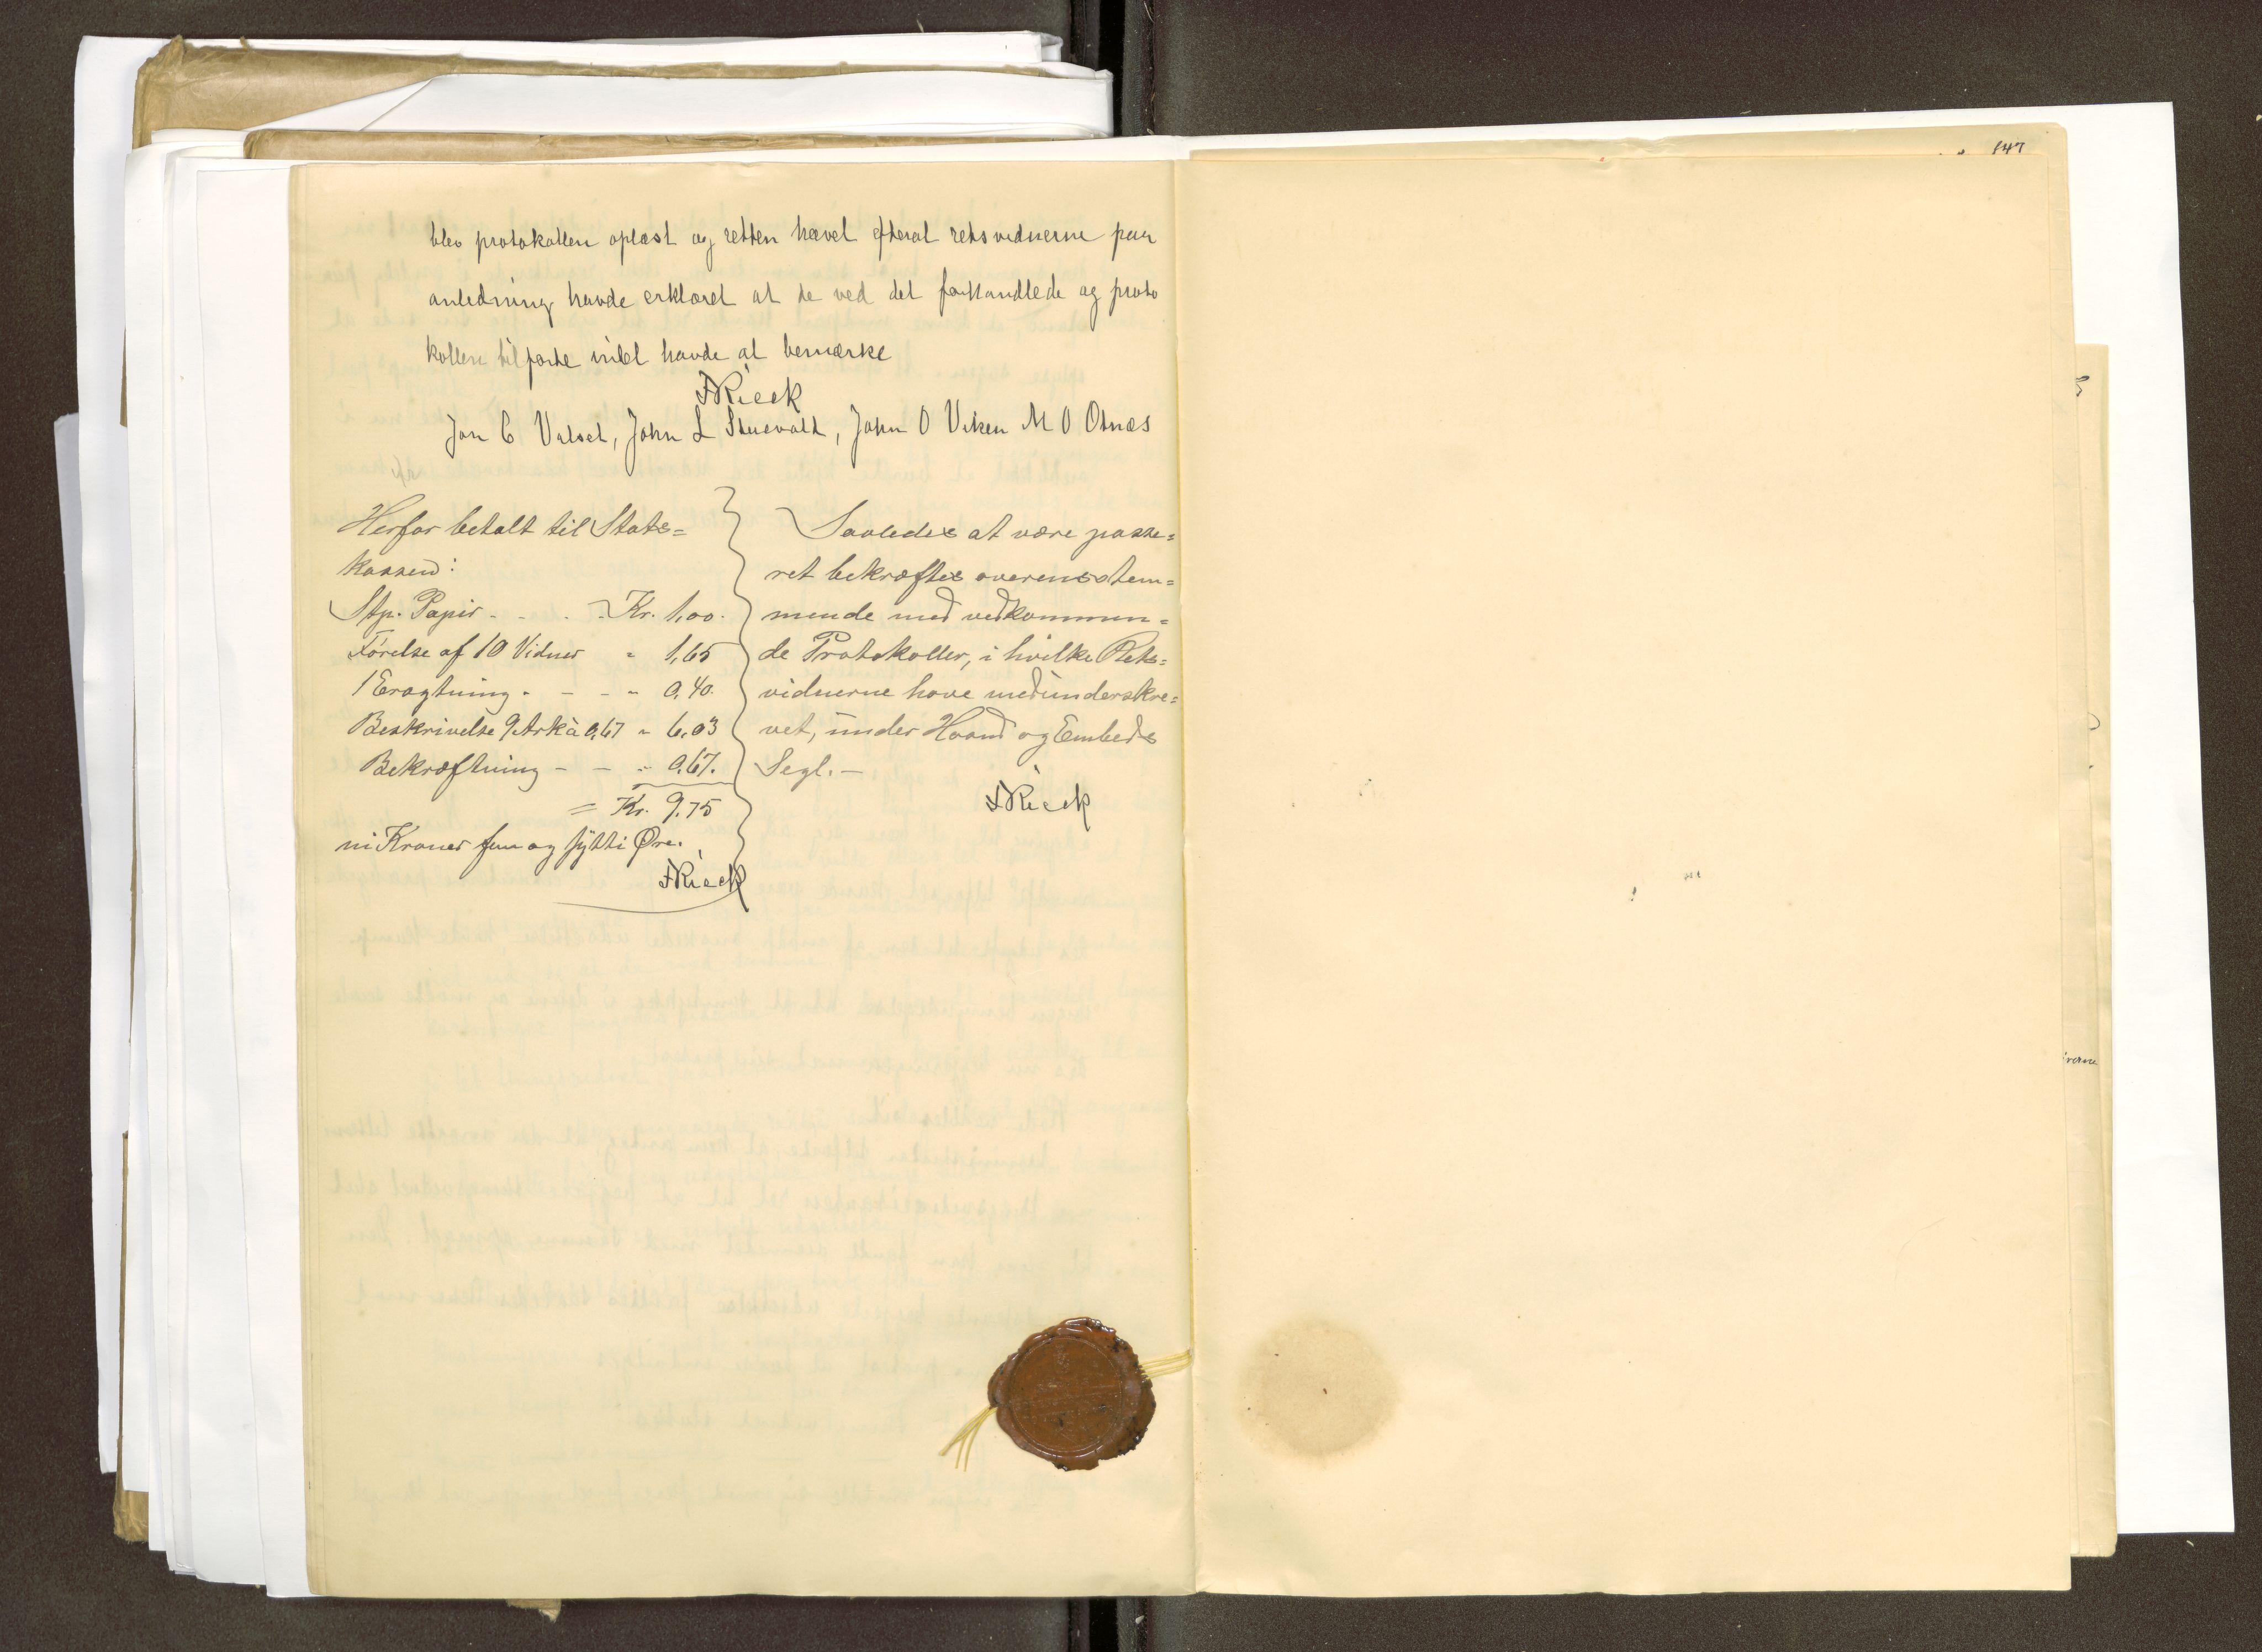 147
blev protokollen oplæst og retten hævet efterat retsvidnerne paa
anledning havde erklæret at de ved det forhandlede og proto
kollen tilførte intet havde at bemærke
FRieck
Jon C Valset, John L Stuevold, John O Viken M O Otnæs
Herfor betalt til Stats=
kassen:
Stp. Papir - - - Kr. 1,00.
Førelse af 10 Vidner " 1,65
1 Eragtning - - - " 0,40.
Beskrivelse 9 Ark à 0,67 " 6,03
Bekræftning - - " 0,67.
= Kr. 9,75
ni Kroner fem og sytti Øre.
FRieck
Saaledes at være passe=
ret bekræftes overensstem=
mende med vedkommen=
de Protokoller, i hvilke Rets=
vidnerne have medunderskre=
vet, under Haand og Embeds
Segl. —
FRieck